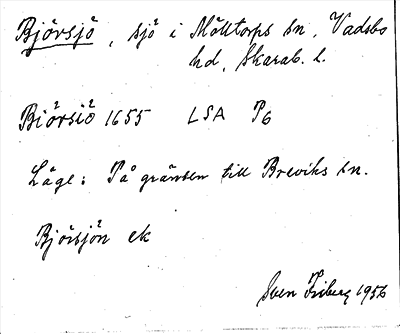 Björsjö, sjö i Mölltorps sn, Vadsbo
hd, Skarab. l.
Biörsiö 1655 LSA P6
Läge: På gränsen till Breviks sn.
Björsjön ek
Sven Friberg 1956